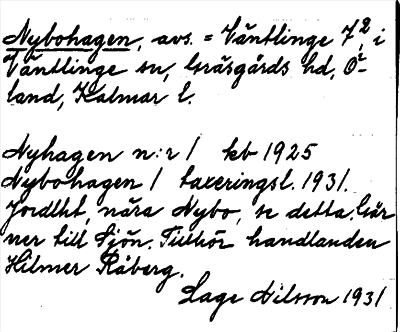 Nybohagen, avs. = Väntlinge 7², i
Väntlinge sn, Gräsgårds hd, Ö-
land, Kalmar l.
Nyhagen n:r 1 kb 1925
Nybohagen 1 taxeringsl. 1931.
Jordlht, nära Nybo, se detta. Grär
ner till Sjön. Tillhör handlanden
Hilmer Råberg.
Lage Nilsson 1931